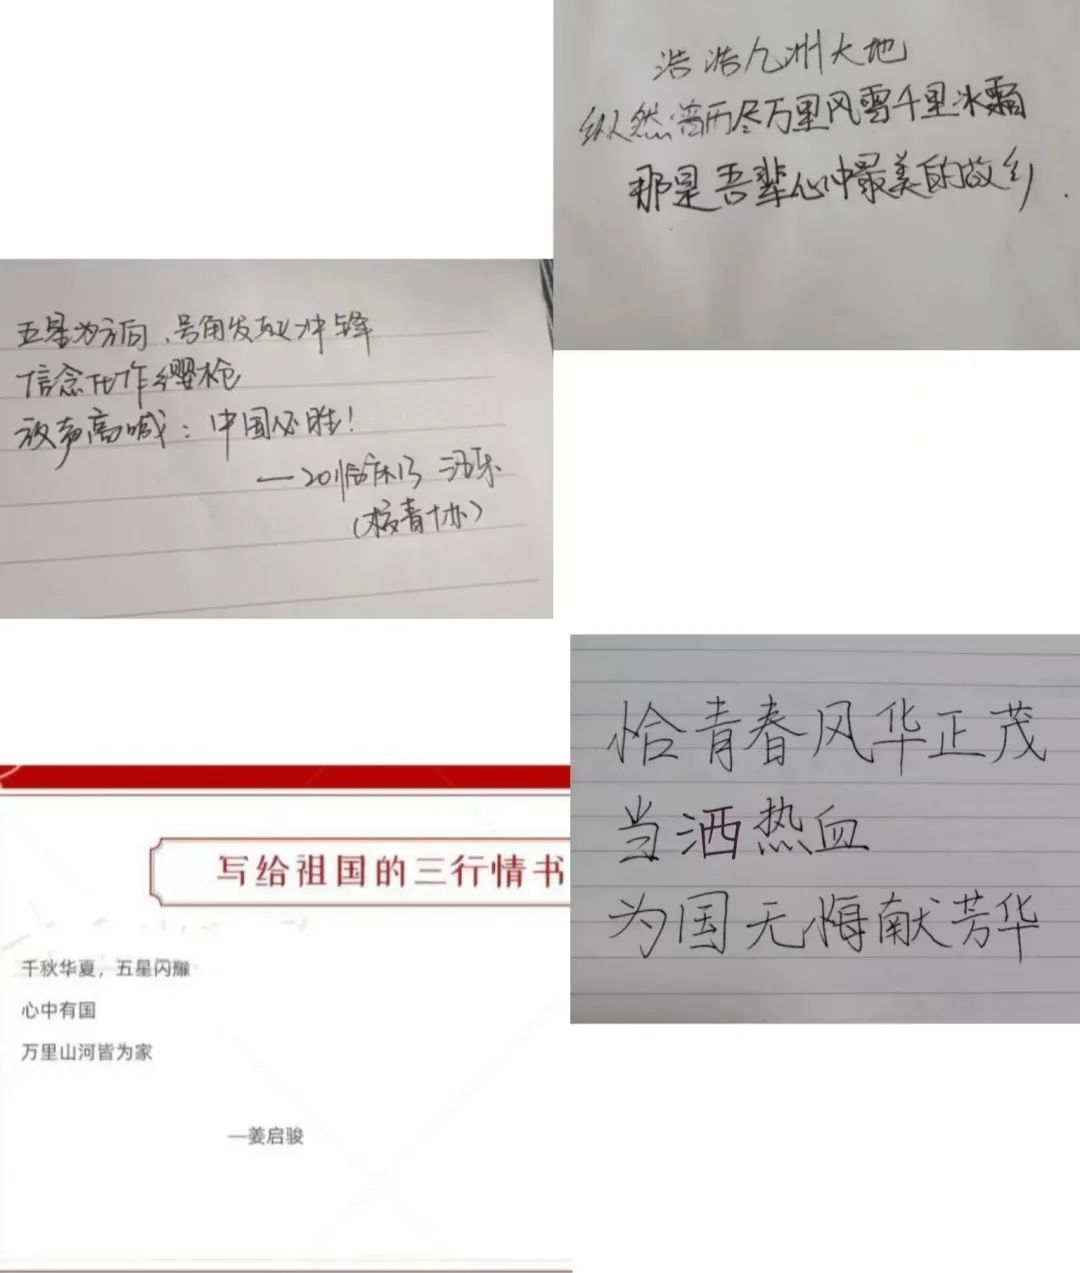 浩浩九州大地
纵然普历尽万里风雪千里冰霜
那是吾辈心中最美的故乡.
五星为方向,号角发起冲锋
信念化作缨枪
放声高喊:中国必胜!
(校青协)
恰青春风华正茂
当洒热血
为国无悔献芳华
写给祖国的三行情书
千秋华夏,五星闪耀
心中有国
万里山河皆为家
—姜启骏